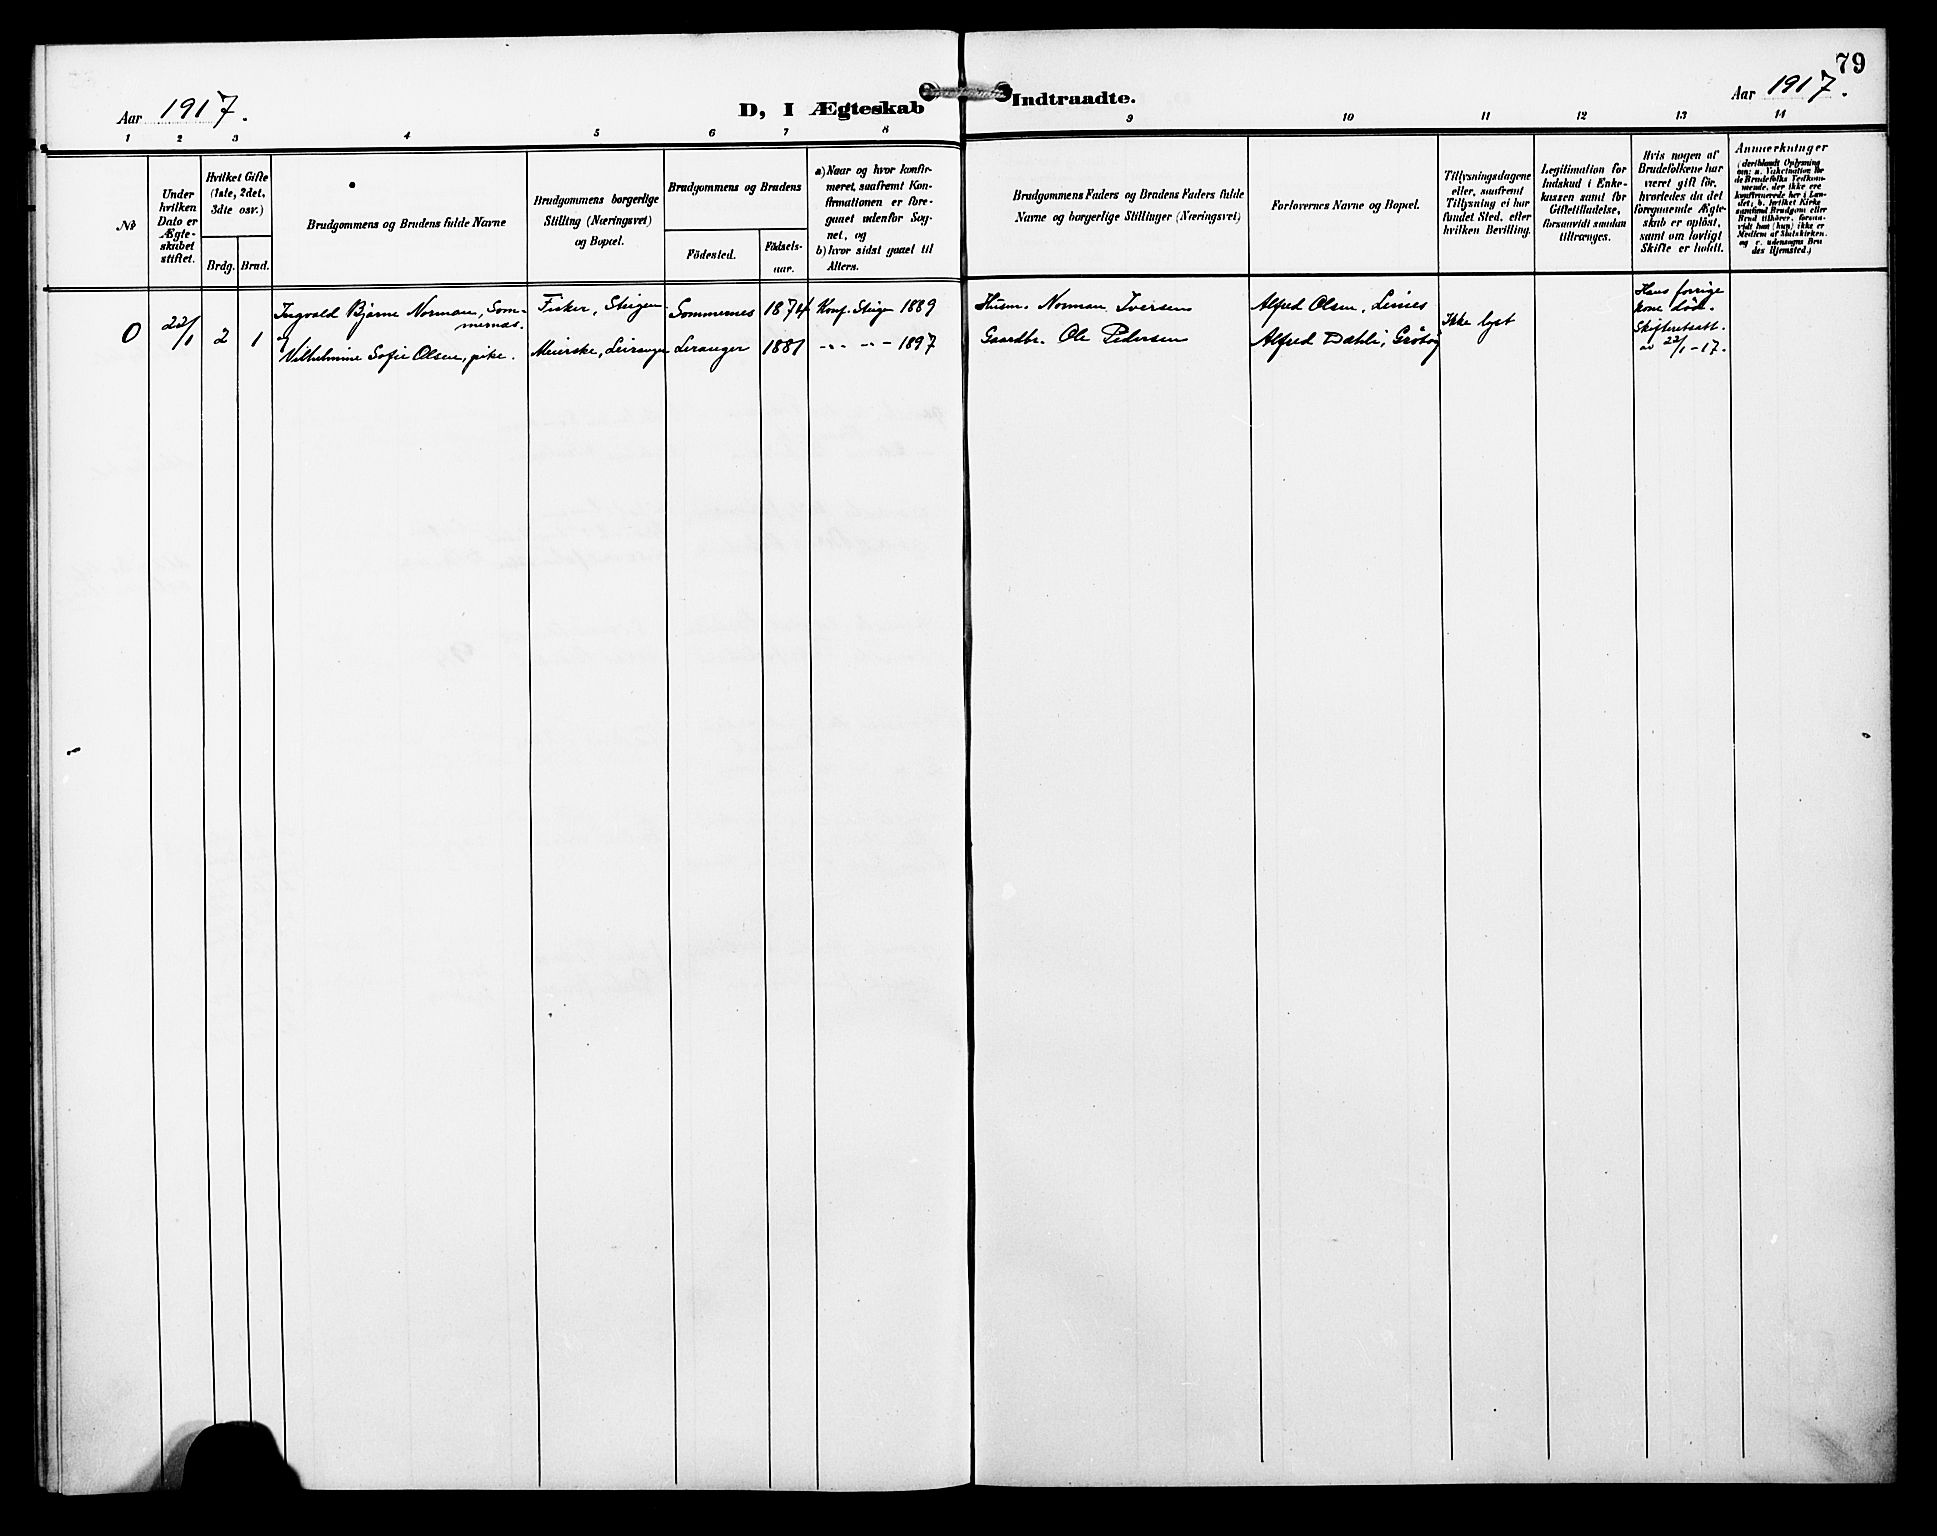 79
Aar 1917.
D, I Ægteskab Indtraadte.
Aar 1917.
1 2 3 4 5 6 7 8 9 10 11 12 13 14
No
Under
hvilken
Dato er
Ægte-
skabet
stiftet.
Hvilket Gifte
(1ste, 2det,
3die osv.)
Brdg. Brud.
Brudgommens og Brudens fulde Navne
Brudgommens borgerlige
Stilling (Næringsvei)
og Bopæl.
Brudgommens og Brudens
Fødested.
Fødsels-
aar.
a) Naar og hvor konfir-
meret, saafremt Kon-
firmationen er fore-
gaaet udenfor Sog-
net, og
b) hvor sidst gaaet til
Alters.
Brudgommens Faders og Brudens Faders fulde
Navne og borgerlige Stillinger (Næringsvei)
Forlovernes Navne og Bopæl.
Tillysningsdagene
eller, saafremt
Tillysning ei har
fundet Sted, efter
hvilken Bevilling.
Legitimation for
Indskud i Enke-
kassen samt for
Giftetilladelse,
forsaavidt saadan
tiltrænges.
Hvis nogen af
Brudefolkene har
været gift før,
hvorledes da det
foregaaende Ægte-
skab er opløst,
samt om lovligt
Skifte er holdt.
Anmærkninger
(deriblandt Oplysning
om: a. Vaksination for
de Brudefolks Vedkom-
mende, der ikke ere
konfirmerede her i Lan-
det; b. hvilket Kirke-
samfund Brudgom eller
Brud tilhører, forsaa-
vidt han (hun) ikke er
Medlem af Statskirken,
og c. udensogns Bru-
des Hjemsted.)
0 22/1 2 1
Ingvald Bjarne Norman, Som-
mernas.
og
Vilhelmine Sofie Olsen, pike.
Fisker, Steigen
Meierske, Leiranger
Sommernes 1874 Konf. Steigen 1889
Leranger 1881 -"- -"- 1897
Husm. Norman Iversen
Gaardbr. Ole Pedersen
Alfred Olsen, Leines
Alfred Dahl, Grøtøy
Ikke lyst
Hans forrige
kone død.
Skifteretsatt.
av 22/1-17.